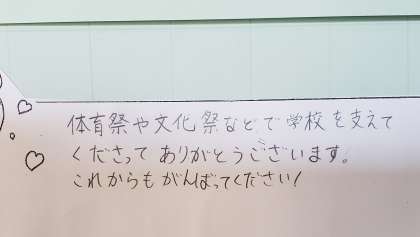 体育祭や文化祭などで学校を支えて
くださって ありがとうございます。
これからも がんばってください!